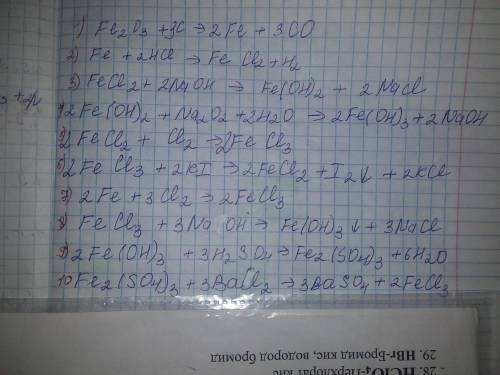 1) Fe2O3 + 3C → 2Fe + 3CO
2) Fe + 2HCl → FeCl2 + H2
3) FeCl2 + 2NaOH → Fe(OH)2 + 2NaCl
4) 2Fe(OH)2 + Na2O2 + 2H2O → 2Fe(OH)3 + 2NaOH
5) 2FeCl2 + Cl2 → 2FeCl3
6) 2FeCl3 + 2KI → 2FeCl2 + I2↓ + 2KCl
7) 2Fe + 3Cl2 → 2FeCl3
8) FeCl3 + 3NaOH → Fe(OH)3↓ + 3NaCl
9) 2Fe(OH)3 + 3H2SO4 → Fe2(SO4)3 + 6H2O
10) Fe2(SO4)3 + 3BaCl2 → 3BaSO4 + 2FeCl3
28. HClO4-Перхлорат кис
29. HBr-Бромид кис, водород бромид